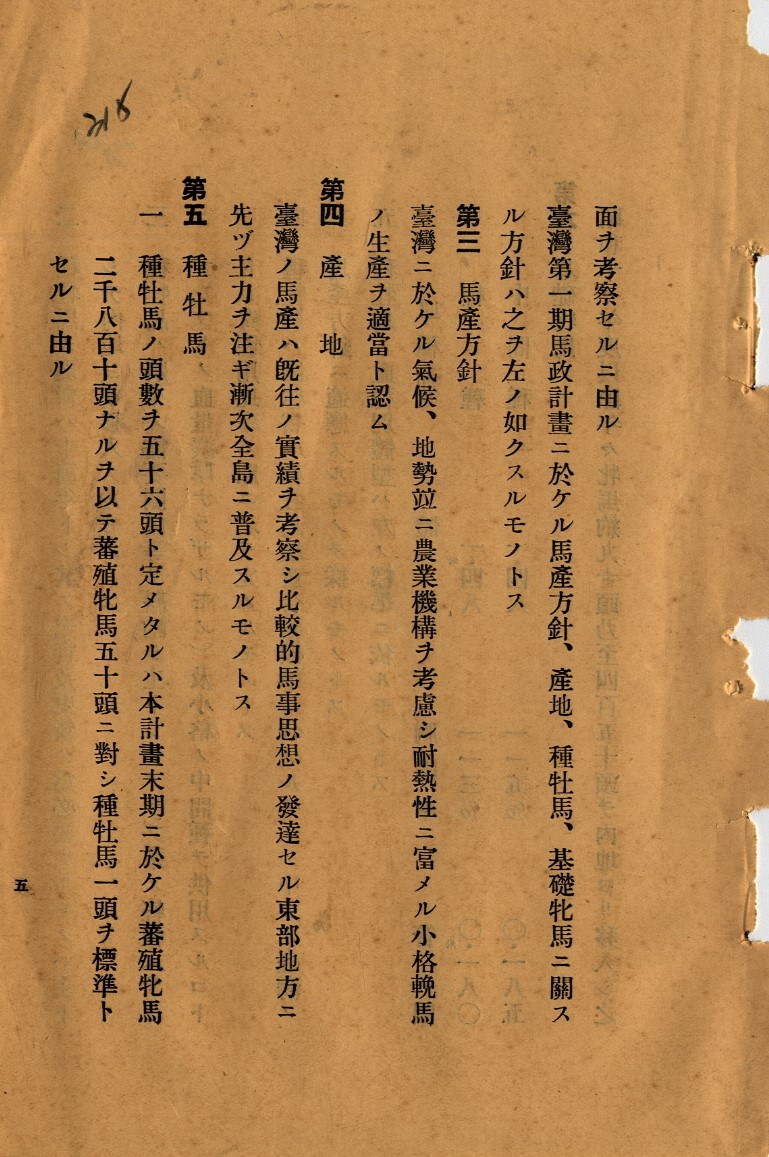 面ヲ考察セルニ由ル
臺灣第一期馬政計畫ニ於ケル馬產方針、產地、種牡馬、基礎牝馬ニ關ス
ル方針ハ之ヲ左ノ如クスルモノトス
第三　馬產方針
臺灣ニ於ケル氣候、地勢竝ニ農業機構ヲ考慮シ耐熱性ニ富メル小格輓馬
ノ生產ヲ適當ト認ム
第四　產　地
臺灣ノ馬產ハ既往ノ實績ヲ考察シ比較的馬事思想ノ發達セル東部地方ニ
先ヅ主力ヲ注ギ漸次全島ニ普及スルモノトス
第五　種　牡　馬
一　種牡馬ノ頭數ヲ五十六頭ト定メタルハ本計畫末期ニ於ケル蕃殖牝馬
二千八百十頭ナルヲ以テ蕃殖牝馬五十頭ニ對シ種牡馬一頭ヲ標準ト
セルニ由ル
五